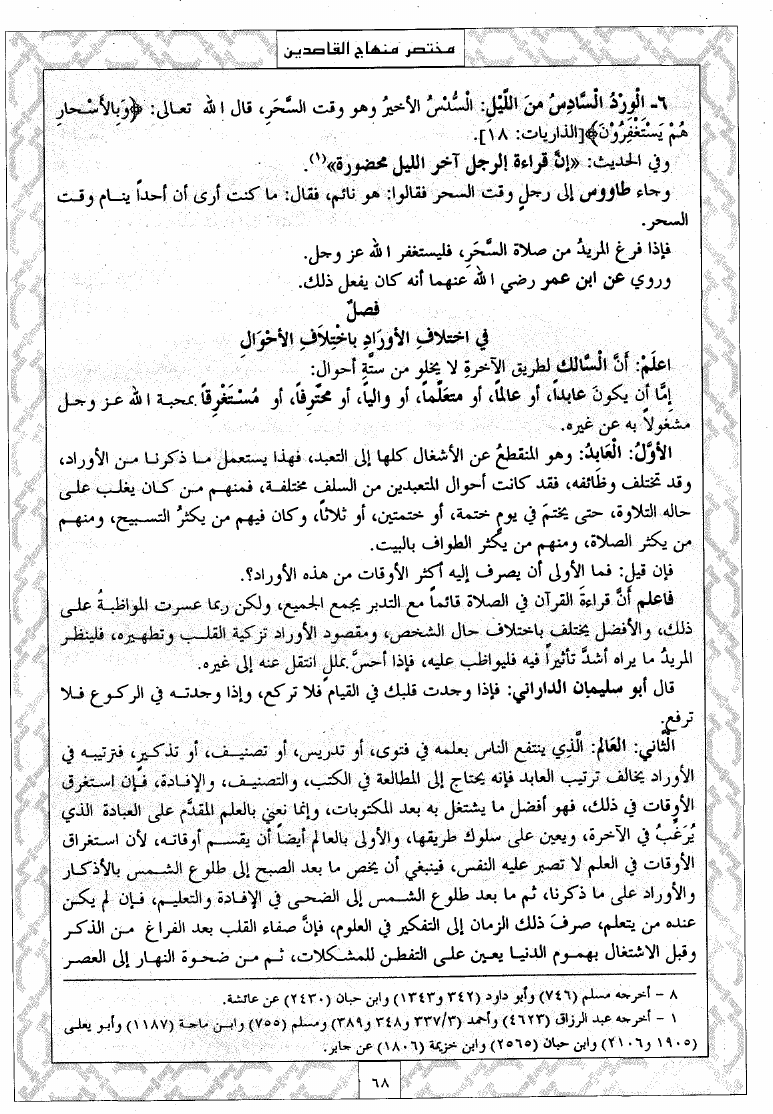 مختصر منهاج القاصدين
٦- الْوِرْدُ السَّادِسُ مِنَ اللَّيْلِ: السُّدُسُ الأخيرُ وهو وقت السَّحَرِ، قال الله تعالى: ﴿وَبِالأَسْحارِ
هُمْ يَسْتَغْفِرُوْنَ﴾[الذاريات: ١٨].
وفي الحديث: «إنَّ قراءة الرجل آخر الليل محضورة»(١).
وجاء طاووس إلى رجلٍ وقت السحر فقالوا: هو نائم، فقال: ما كنت أرى أن أحداً ينام وقت
السحر.
فإذا فرغ المريدُ من صلاة السَّحَرِ، فليستغفر الله عز وجل.
وروي عن ابن عمر رضي الله عنهما أنه كان يفعل ذلك.
فصلٌ
في اختلافِ الأورَادِ باخْتِلَافِ الأحْوَالِ
اعلَمْ: أنَّ السَّالك لطريق الآخرةِ لا يخلو من ستَّةِ أحوال:
إمَّا أن يكونَ عابداً، أو عالماً، أو متعلِّماً، أو والياً، أو محترِفاً، أو مُسْتَغْرِقاً بمحبة الله عز وجل
مشغولاً به عن غيره.
الأوَّلُ: الْعَابِدُ: وهو المنقطعُ عن الأشغال كلها إلى التعبد، فهذا يستعمل ما ذكرنا من الأوراد،
وقد تختلف وظائفه، فقد كانت أحوال المتعبدين من السلف مختلفة، فمنهم من كان يغلب على
حاله التلاوة، حتى يختمَ في يومٍ ختمة، أو ختمتين، أو ثلاثاً، وكان فيهم من يكثرُ التسبيح، ومنهم
من يكثر الصلاة، ومنهم من يكثر الطواف بالبيت.
فإن قيل: فما الأولى أن يصرف إليه أكثر الأوقات من هذه الأوراد؟.
فاعلم أنَّ قراءةَ القرآن في الصلاة قائماً مع التدبر يجمع الجميع، ولكن ربما عسرت المواظبةُ على
ذلك، والأفضل يختلف باختلاف حال الشخص، ومقصود الأوراد تزكية القلب وتطهيره، فلينظر
المريدُ ما يراه أشدَّ تأثيراً فيه فليواظب عليه، فإذا أحسَّ بمللٍ انتقل عنه إلى غيره.
قال أبو سليمان الداراني: فإذا وجدت قلبك في القيام فلا تركع، وإذا وجدته في الركوع فلا
ترفع.
الثَّاني: العَالم: الَّذِي ينتفع الناس بعلمه في فتوى، أو تدريس، أو تصنيف، أو تذكيرٍ، فترتيبه في
الأوراد يخالف ترتيب العابد فإنه يحتاج إلى المطالعة في الكتب، والتصنيف، والإفادة، فإن استغرق
الأوقات في ذلك، فهو أفضل ما يشتغل به بعد المكتوبات، وإنما نعني بالعلم المقدَّم على العبادة الذي
يُرَغِّبُ في الآخرة، ويعين على سلوك طريقها، والأولى بالعالم أيضاً أن يقسم أوقاته، لأن استغراق
الأوقات في العلم لا تصبر عليه النفس، فينبغي أن يخص ما بعد الصبح إلى طلوع الشمس بالأذكار
والأوراد على ما ذكرنا، ثم ما بعد طلوع الشمس إلى الضحى في الإفادة والتعليم، فإن لم يكن
عنده من يتعلم، صرفَ ذلك الزمان إلى التفكير في العلوم، فإنَّ صفاء القلب بعد الفراغ من الذكر
وقبل الاشتغال بهموم الدنيا يعين على التفطن للمشكلات، ثم من ضحوة النهار إلى العصر
٨ - أخرجه مسلم (٧٤٦) وأبو داود (٣٤٢ و١٣٤٣) وابن حبان (٢٤٣٠) عن عائشة.
١ - أخرجه عبد الرزاق (٤٦٢٣) وأحمد (٣٣٧/٣ و٣٤٨ و٣٨٩) ومسلم (٧٥٥) وابن ماجة (١١٨٧) وأبو يعلى
(١٩٠٥ و٢١٠٦) وابن حبان (٢٥٦٥) وابن خزيمة (١٨٠٦) عن جابر.
٦٨